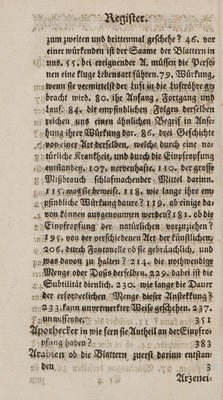 Register.
zum zweiten und drittenmal geschehe? 46. vor
einer würkenden ist der Saame der Blattern in
uns. 55. bei ereignender A. müssen die Perso-
nen eine kluge Lebensart führen. 79. Würkung,
wenn sie vermittelst der Luft in die Luftröhre ge-
bracht wird. 80. ihr Anfang, Fortgang und
Lauf. 84. die empfindlichen Folgen derselben
reichen uns einen ähnlichen Begrif in Anse-
hung ihrer Würkung dar. 86. drei Geschichte
von einer Art derselben, welche durch eine na-
türliche Krankheit, und durch die Einpfropfung
entstanden. 107. nervenhafte. 110. der grosse
Mißbrauch schlafmachender Mittel darinn.
115. was sie heweise. 118. wie lange ihre em-
pfindliche Würkung daure? 119. ob einige da-
von können ausgenommen werden? 181. ob die
Einpfropfung der natürlichen vorzuziehen?
195. von der verschiedenen Art der künstlichen.
206. durch Fontanelle ob sie gebräuchlich, und
was davon zu halten? 214. die nothwendige
Menge oder Dosis derselben. 229. dabei ist die
Subtilität dienlich. 230. wie lange die Dauer
der erforderlichen Menge dieser Ansteckung?
233. kann unvermerkter Weise geschehen. 237.
unwissende. 351
Apothecker in wie fern sie Antheil an der Einpfro-
pfung haben? 383
Arabien ob die Blattern zuerst darinn entstan-
den 3
Arzenei-